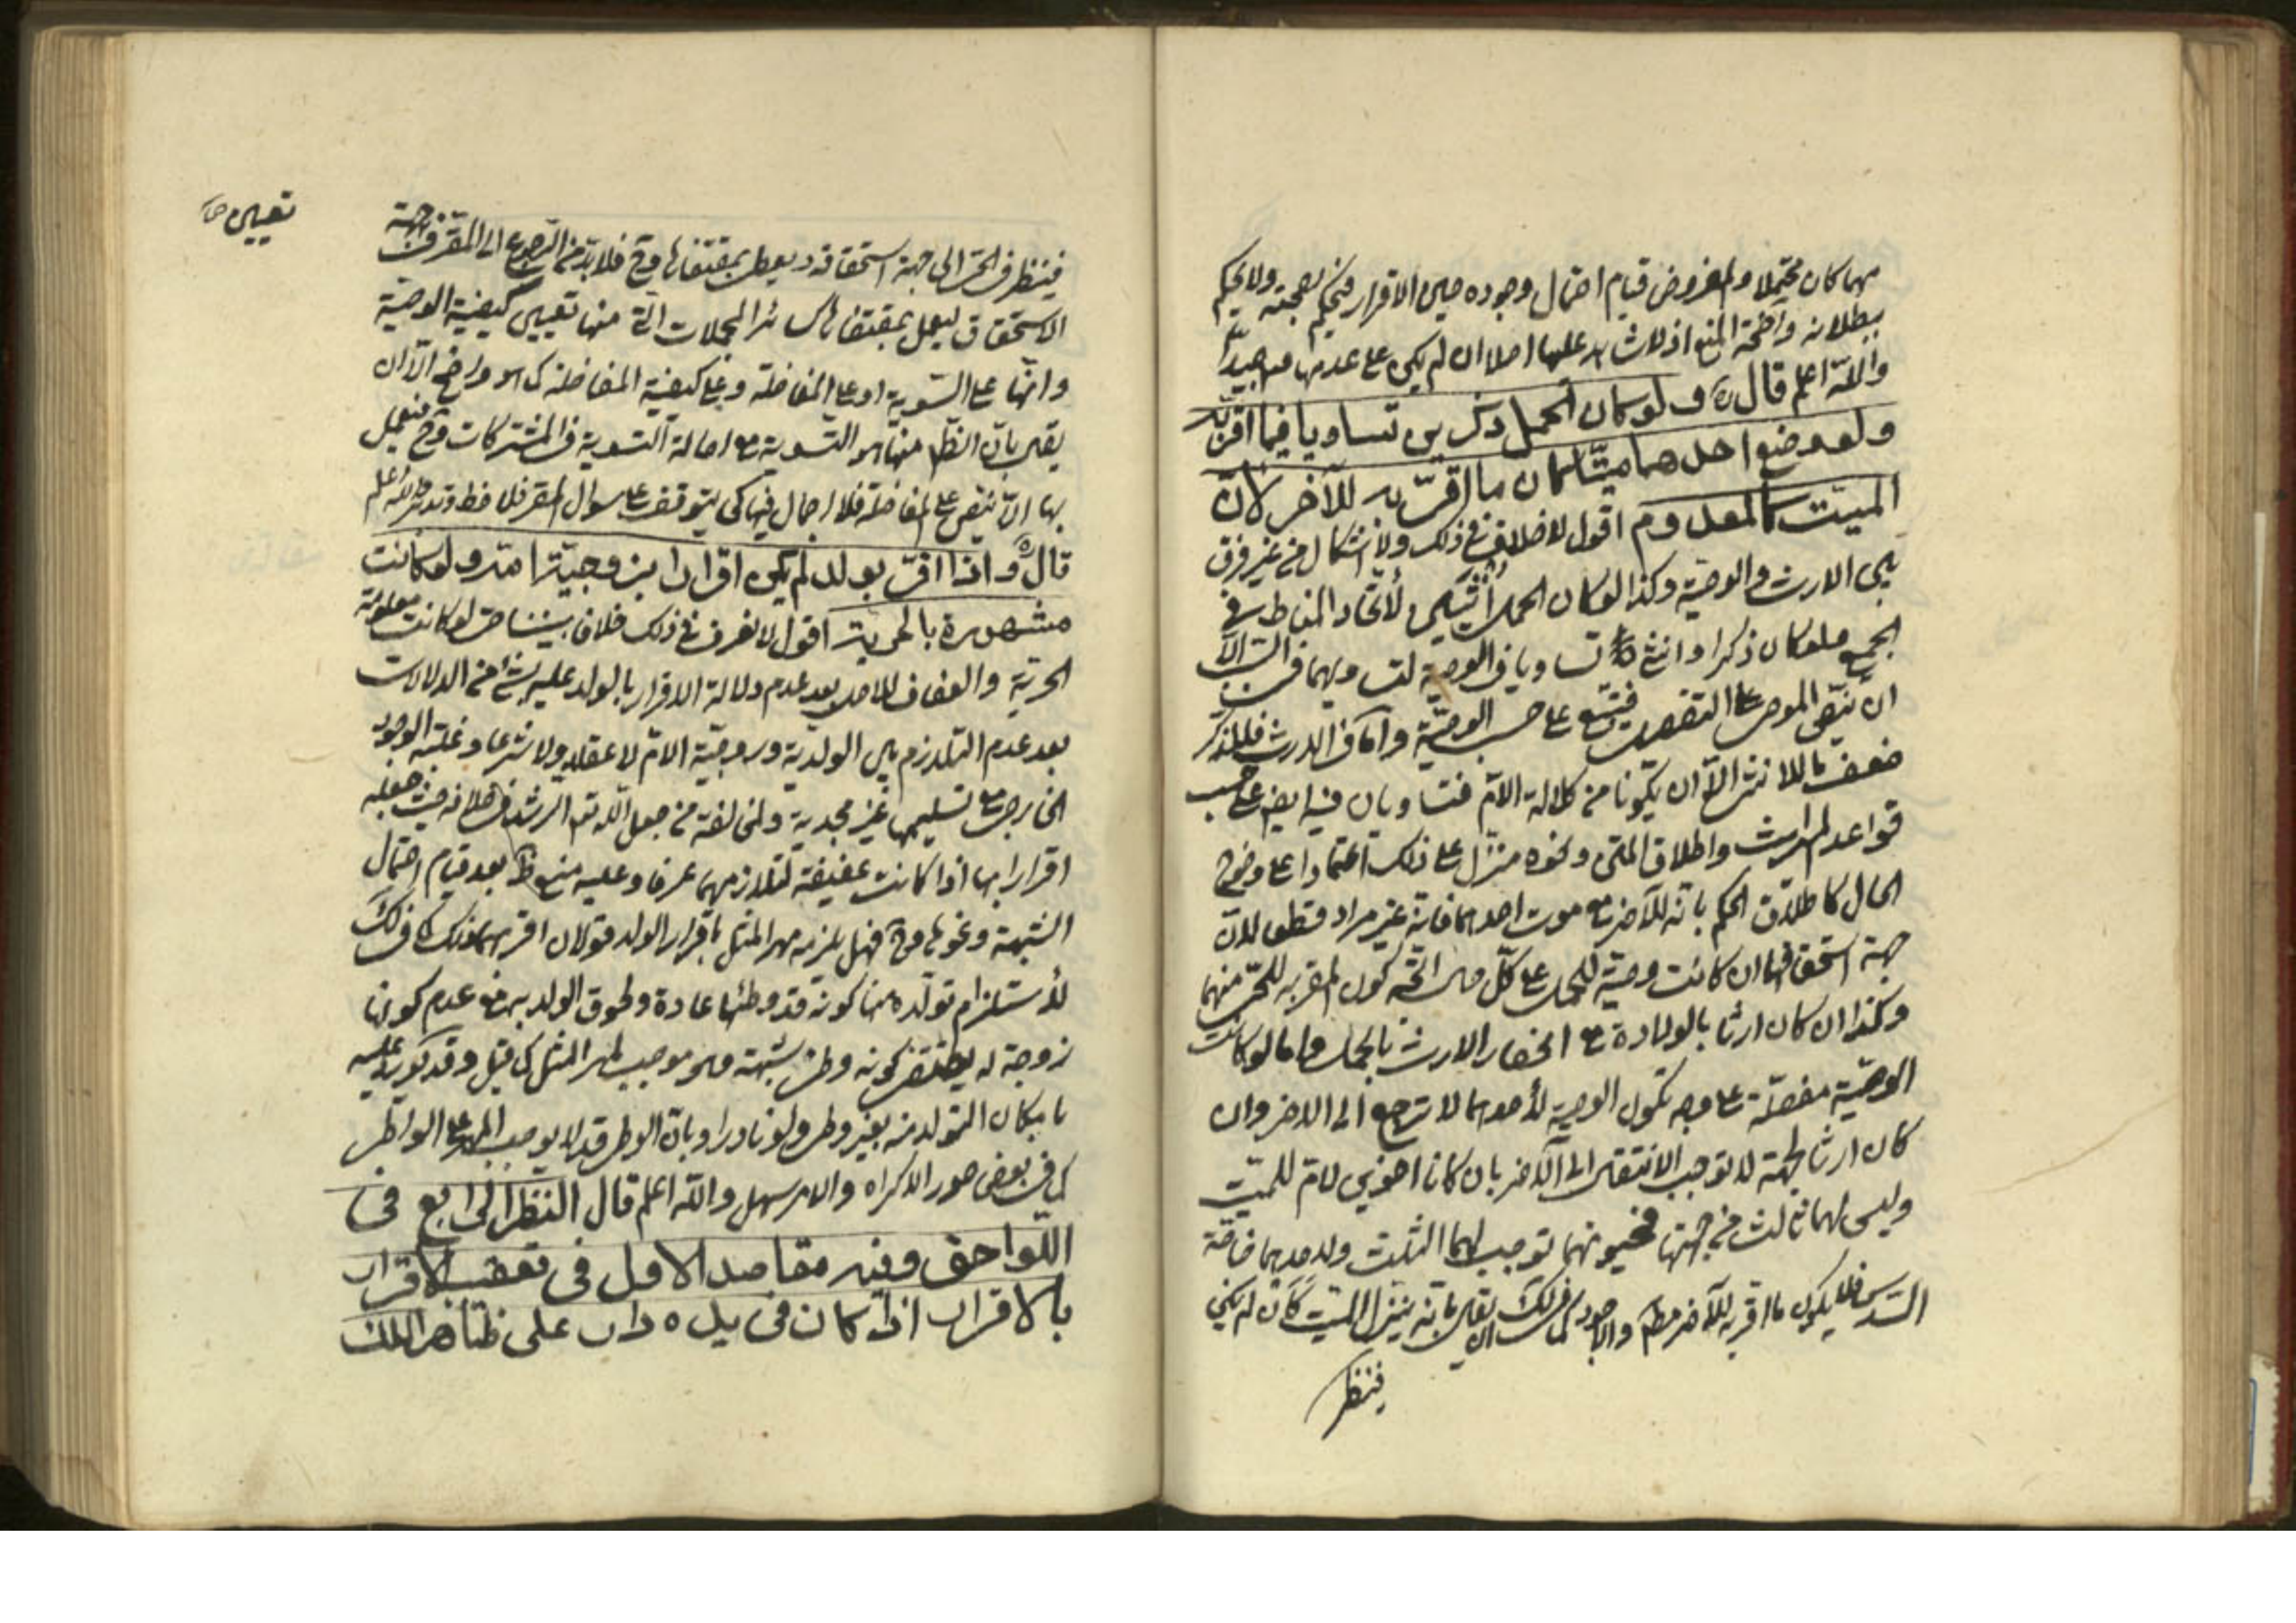 مهما كان محتملا والمفروض قيام احتمال وجوده حين الاقرار فيحكم بصحته ولا يحكم
ببطلانه واضحة المنع اذ لا شاهد عليها اصلا ان لم يكن على عدمها
والله اعلم قال ره ولو كان الحمل ذكرين تساويا فيما اقر به
ولو وضع احدهما ميتا كان ما اقر به للآخر لان
الميت كالمعدوم اقول لا خلاف في ذلك ولا اشكال من غير فرق
بين الارث والوصية وكذا لو كان الحمل انثيين لاتحاد المناط في
الجميع ولو كان ذكرا وانثى تساويا في الوصية لتساويهما في السبب الا
ان ينص الموصي على التفضيل فيتبع على حسب الوصية واما في الارث فللذكر
ضعف ما للانثى الا ان يكونا من كلالة الام فتساويان فيه ايضا على حسب
قواعد المواريث واطلاق المتن ونحوه منزل على ذلك اعتمادا على وضوح
الحال كاطلاق الحكم بانه للآخر مع موت احدهما فانه غير مراد قطعا لان
جهة استحقاقهما ان كانت وصية للحمل على كل حال اتجه كون المقر به للحي منهما
وكذا ان كان ارثا بالولادة مع انحصار الارث بالحمل واما لو كانت
الوصية مفصلة على وجه تكون الوصية لأحدهما لا ترجع الى الاخر وان
كان ارثا لجهة لا توجب الانتقال الى الآخر بان كانا اخوين لام للميت
وليس لهما ثالث من جهتها فحيوتهما توجب لهما الثلث ولاحدهما خاصة
السدس فلا يكون ما اقر به للآخر مطلقا بانه ينزل الميت كان لم يكن
فينظر
تعيين
فينظر في الحي الى جهة استحقاقه ويعطى بمقتضاها وح فلا بد من الرجوع الى المقر في جهة
الاستحقاق ليعمل بمقتضاها كسائر المجملات التي منها تعيين كيفية الوصية
وانها على التسوية او على المفاضلة وعلى كيفية المفاضلة كما هو واضح الا ان
يقال بان الظاهر منها هو التسوية مع اصالة التسوية في المشتركات وح فيعمل
بها الا ان ينص على المفاضلة فلا اجمال فيها كي يتوقف على سؤال المقر فلاحظ وتدبر والله اعلم
قال ره واذا اقر بولد لم يكن اقرارا بزوجية امه ولو كانت
مشهورة بالحرية اقول لا نعرف في ذلك خلافا بيننا حتى لو كانت معلومة
الحرية والعفاف للاصل بعد عدم دلالة الاقرار بالولد عليه بشئ من الدلالات
بعد عدم التلازم بين الولدية وزوجية الام لا عقلا ولا شرعا وغلبة الوجود
الخارجي مع تسليمها غير مجدية ولا نعرف من جعل الله له الرشد في خلافه حيث جعله
اقرارا بها اذا كانت عفيفة لتلازمهما عرفا وعليه منع ظاهر بعد قيام احتمال
الشبهة ونحوها وح فهل يلزمه مهر المثل باقرار الولد قولان اقربهما ذلك
لأستلزام تولده منها كونه قد وطئها عادة ولحوق الولد به مع عدم كونها
زوجة له يقتضى كونه وطئ شبهة وهو موجب لمهر المثل كما قيل وقد يورد عليه
بامكان التولد منه بغير وطئ ولو نادرا وبان الوطئ قد لا يوجب المهر على الواطئ
كما في بعض صور الاكراه والامر سهل والله اعلم قال النظر الرابع في
اللواحق وفيه مقاصد الاول في تعقيب الاقرار
بالاقرار اذا كان في يده دار على ظاهر الملك